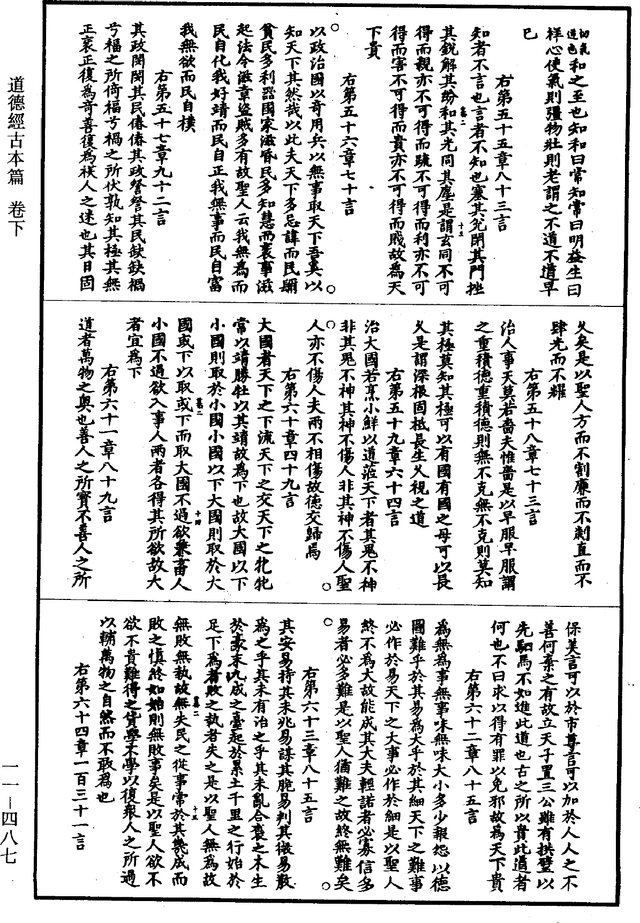 道德經古本篇 卷下
和之至也知和曰常知常曰明益生曰
祥心使氣則彊物壯則老謂之不道不道早
已
右第五十五章八十三言
知者不言也言者不知也塞其兌閉其門挫
其銳解其紛和其光同其塵是謂玄同不可
得而親亦不可得而疏不可得而利亦不可
得而害不可得而貴亦不可得而賤故為天
下貴
右第五十六章七十言
以政治國以奇用兵以無事取天下吾奚以
知天下其然哉以此夫天下多忌諱而民彌
貧民多利器國家滋昏民多知慧而衺事滋
起法令滋章盜賊多有故聖人云我無為而
民自化我好靖而民自正我無事而民自富
我無欲而民自樸
右第五十七章九十二言
其政閔閔其民偆偆其政詧詧其民缺缺禍
兮福之所倚福兮禍之所伏孰知其極其無
正衺正復為奇善復為祅人之迷也其日固
久矣是以聖人方而不割廉而不劌直而不
肆光而不耀
右第五十八章七十三言
治人事天莫若嗇夫惟嗇是以早服早服謂
之重積德重積德則無不克無不克則莫知
其極莫知其極可以有國有國之母可以長
久是謂深根固柢長生久視之道
右第五十九章六十四言
治大國若烹小鮮以道蒞天下者其鬼不神
非其鬼不神其神不傷人非其神不傷人聖
人亦不傷人夫兩不相傷故德交歸焉
右第六十章四十九言
大國者天下之下流天下之交天下之牝牝
常以靖勝牡以其靖故為下也故大國以下
小國則取於小國小國以下大國則取於大
國或下以取或下而取大國不過欲兼畜人
小國不過欲入事人兩者各得其所欲故大
者宜為下
右第六十一章八十九言
道者萬物之奧也善人之所寶不善人之所
保美言可以於市尊言可以加於人人之不
善何棄之有故立天子置三公雖有拱璧以
先駟馬不如進此道也古之所以貴此道者
何也不曰求以得有罪以免邪故為天下貴
右第六十二章八十五言
為無為事無事味無味大小多少報怨以德
圖難乎於其易為大乎於其細天下之難事
必作於易天下之大事必作於細是以聖人
終不為大故能成其大夫輕諾者必寡信多
易者必多難是以聖人猶難之故終無難矣
右第六十三章八十五言
其安易持其未兆易謀其脃易判其微易散
為之乎其未有治之乎其未亂合裒之木生
於豪末九成之臺起於累土千里之行始於
足下為者敗之執者失之是以聖人無為故
無敗無執故無失民之從事常於其幾成而
敗之慎終如始則無敗事矣是以聖人欲不
欲不貴難得之貨學不學以復衆人之所過
以輔萬物之自然而不敢為也
右第六十四章一百三十一言
一一—四八七